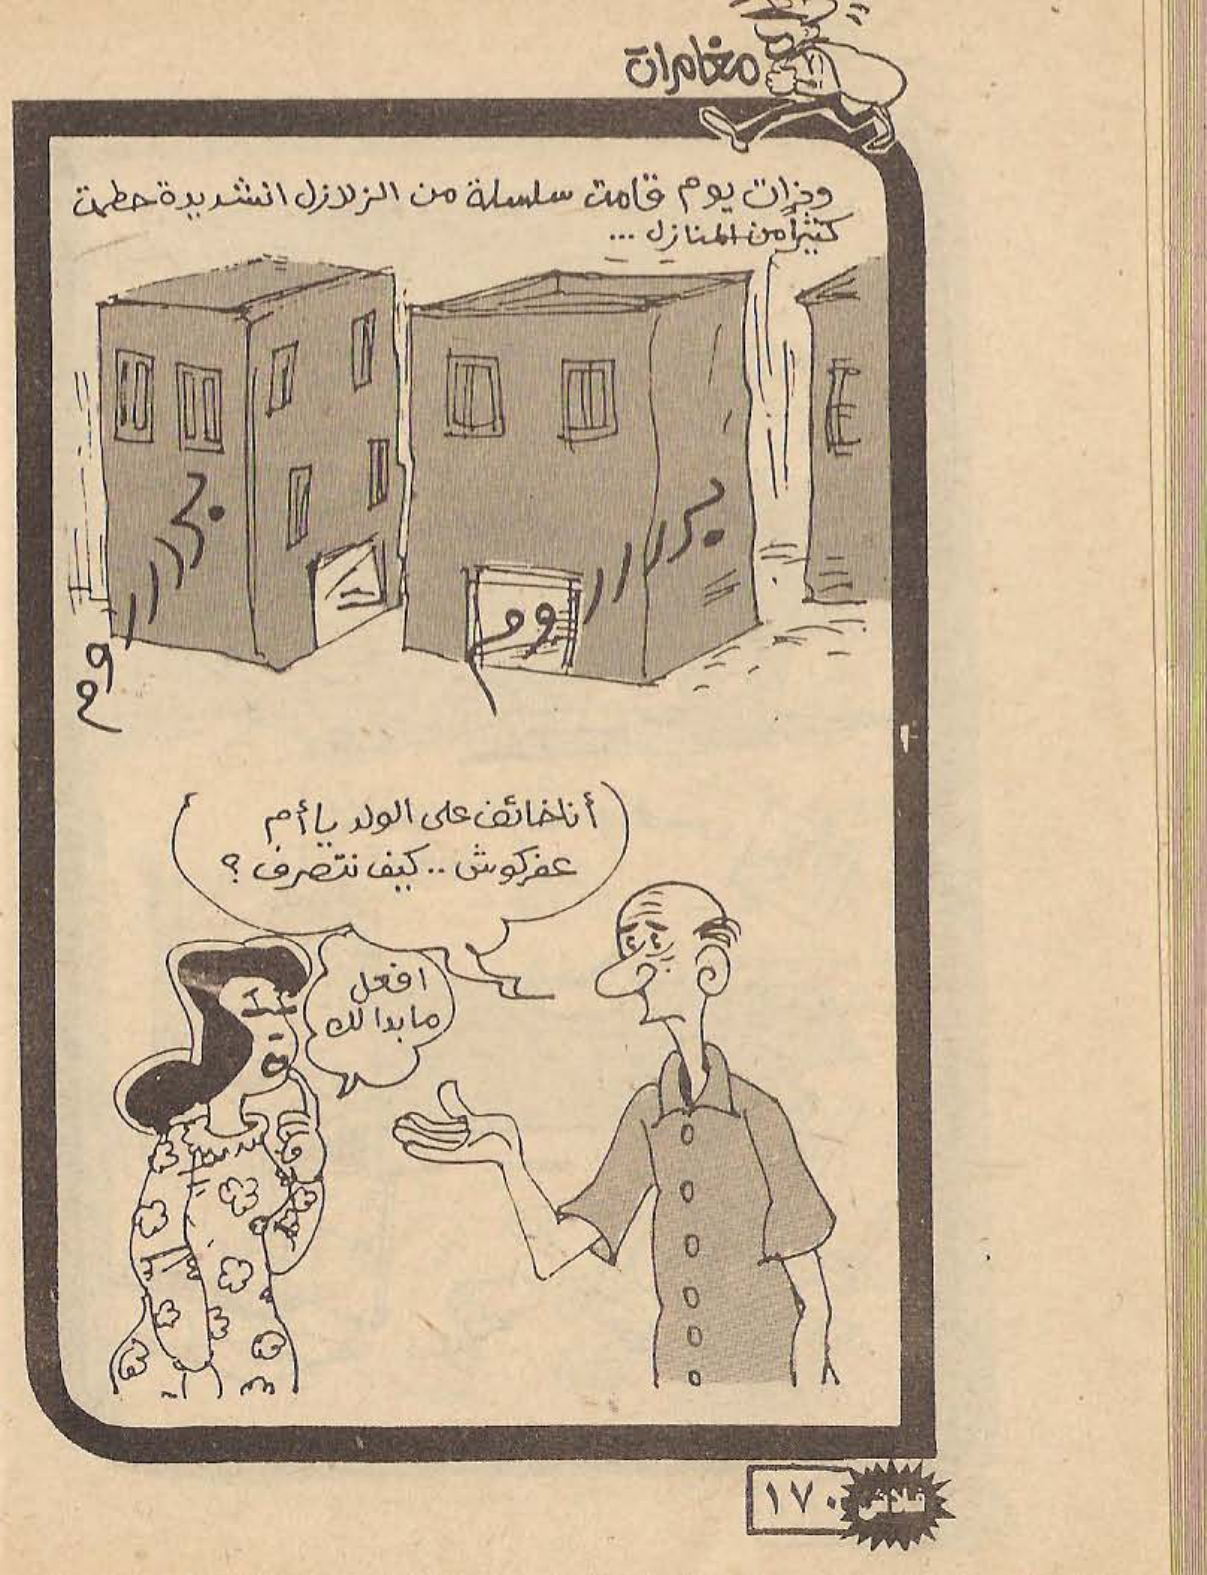 مغامرات
وذات يوم قامت سلسلة من الزلازل الشديدة حطمت
كثيراً من المنازل ...
بررررووم
بررررووم
أنا خائف على الولد يا أم
عفركوش .. كيف نتصرف ؟
افعل
ما بدا لك
فلاش
١٧٠